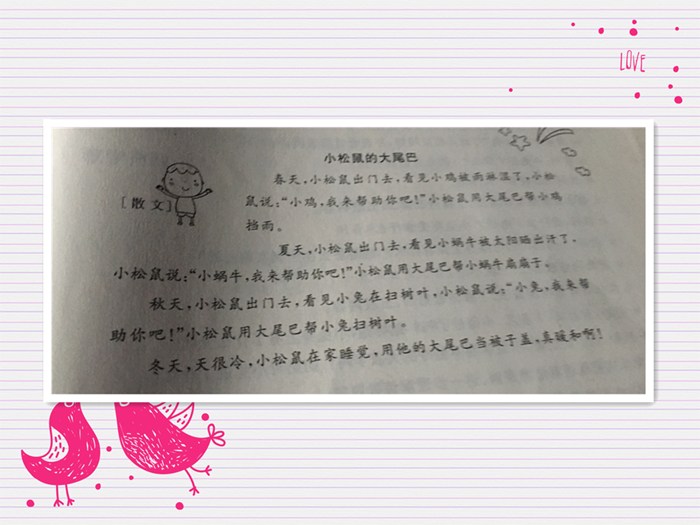 LOVE
小松鼠的大尾巴
[散文]
春天,小松鼠出门去,看见小鸡被雨淋湿了,小松
鼠说:“小鸡,我来帮助你吧!”小松鼠用大尾巴帮小鸡
挡雨。
夏天,小松鼠出门去,看见小蜗牛被太阳晒出汗了,
小松鼠说:“小蜗牛,我来帮助你吧!”小松鼠用大尾巴帮小蜗牛扇扇子。
秋天,小松鼠出门去,看见小兔在扫树叶,小松鼠说:“小兔,我来帮
助你吧!”小松鼠用大尾巴帮小兔扫树叶。
冬天,天很冷,小松鼠在家睡觉,用他的大尾巴当被子盖,真暖和啊!